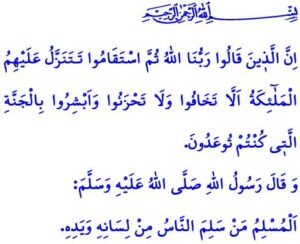 بِسْمِ اللهِ الرَّحْمٰنِ الرَّحِيمِ
اِنَّ الَّذٖينَ قَالُوا رَبُّنَا اللهُ ثُمَّ اسْتَقَامُوا تَتَنَزَّلُ عَلَيْهِمُ
الْمَلٰٓئِكَةُ اَلَّا تَخَافُوا وَلَا تَحْزَنُوا وَاَبْشِرُوا بِالْجَنَّةِ
الَّتٖى كُنْتُمْ تُوعَدُونَ.
وَ قَالَ رَسُولُ اللهِ صَلَّى اللهُ عَلَيْهِ وَسَلَّمَ:
اَلْمُسْلِمُ مَنْ سَلِمَ النَّاسُ مِنْ لِسَانِهِ وَيَدِهِ.